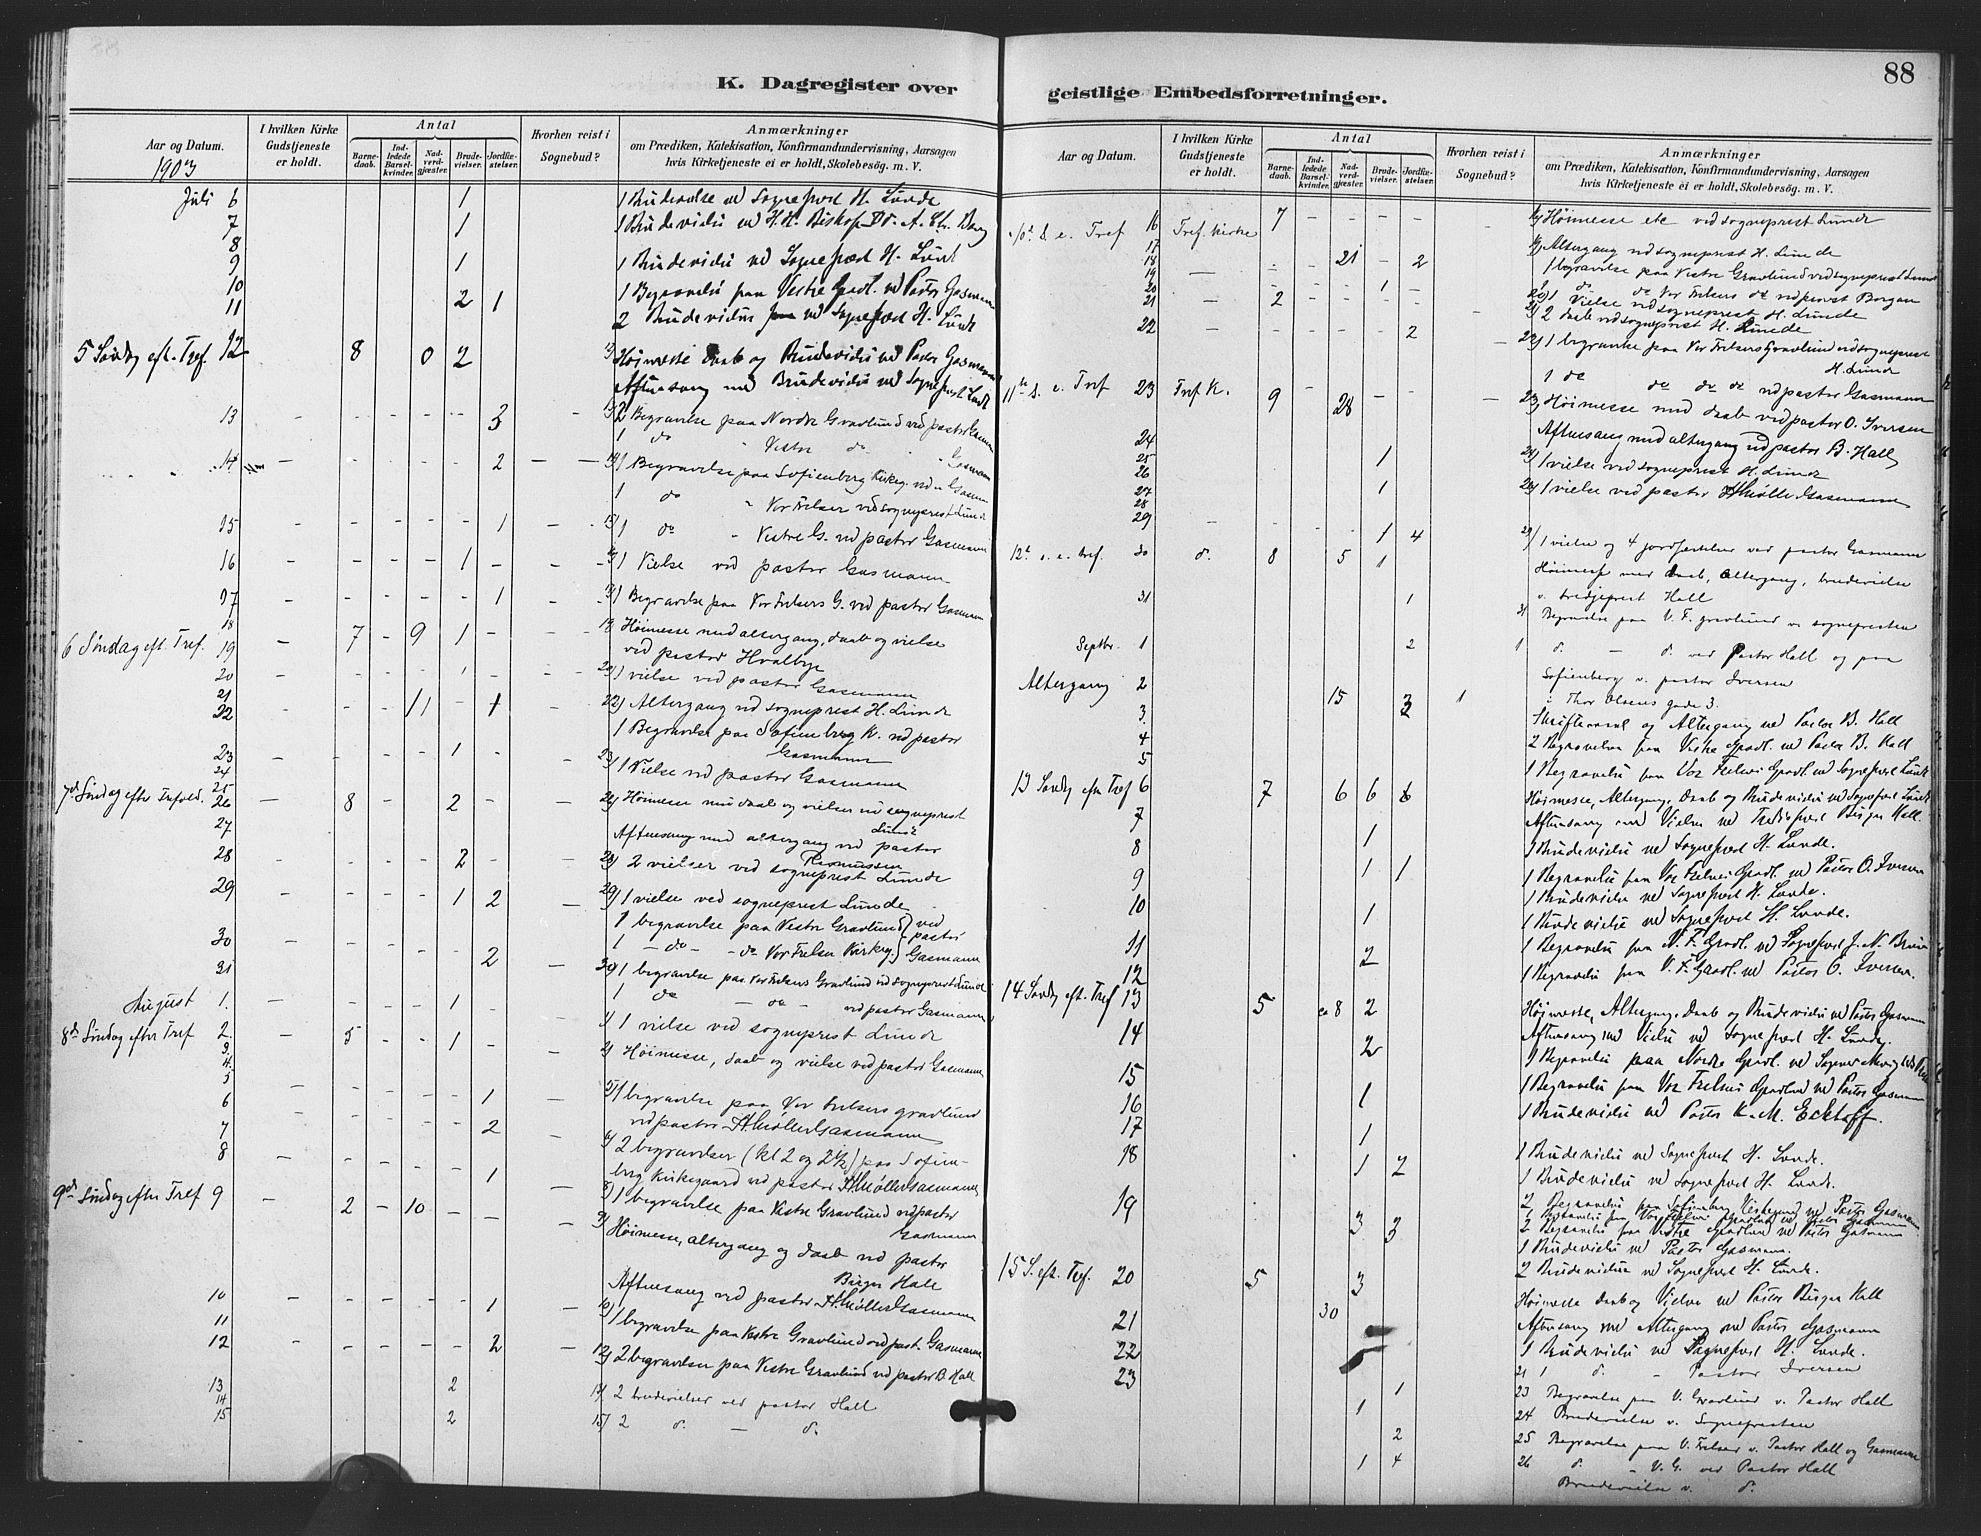 88
K. Dagregister over geistlige Embedsforretninger.
Aar og Datum.
1903
I hvilken Kirke Gudstjeneste er holdt.
Antal
Barnedaab.
Indledede Barselkvinder.
Nadverdgjæster.
Brudevielser.
Jordfæstelser.
Hvorhen reist i Sognebud?
Anmærkninger
om Prædiken, Katekisation, Konfirmandundervisning, Aarsagen
hvis Kirketjeneste ei er holdt, Skolebesøg. m. V.
Juli 6 1 1 Brudevielse ved Sogneprest H. Lunde
7 1 1 Brudevielse ved H. H. Biskop Dr. A. Chr. Bang
8
9 1 1 Brudevielse ved Sogneprest H. Lunde
10 1 Begravelse paa Vestre Gravl. ved Pastor Gasmann
11 2 1 2 Brudevielser ved Sogneprest H. Lunde
5 Søndag eft. Tref. 12 8 0 2 Høimesse Daab og Brudevielse ved Pastor Gasmann
Aftensang med Brudevielse ved Sogneprest Lunde
13 - - - - - 3 - 13) 2 Begravelse paa Nordre Gravlund ved pastor Gasmann
1 do Vestre do " Gasmann
14 - - - - - 2 - - 14) 1 Begravelse paa Sofienberg Kirkeg. ved " Gasmann
1 do " Vor Frelser ved sogneprest Lunde
15 - - - - - 1 - - 15) 1 do " Vestre G. ved pastor Gasmann
16 - - - - 1 - - - 16) 1 Vielse ved pastor Gasmann
17 - - - - - 1 - - 17) 1 Begravelse paa Vor Frelsers G. ved pastor Gasmann
18
6 Søndag eft. Tref. 19 - 7 - 9 1 - - 19) Høimesse med altergang, daab og vielse
ved pastor Hvalbye
20 - - - - 1 - - - 20) 1 vielse ved pastor Gasmann
21
22 - - - 11 - 1 - 22) Altergang ved sogneprest H. Lunde
1 Begravelse paa Sofienberg K. ved pastor
Gasmann
23 - - - - 1 - - 23) 1 Vielse ved pastor Gasmann
24
25
7de Søndag efter Trefold. 26 - 8 - - 2 - - 26) Høimesse med daab og vielser ved sogneprest
Lunde
27 Aftensang med altergang ved pastor
Rasmussen
28 - - - - 2 - - 28) 2 vielser ved sogneprest Lunde
29 - - - - 1 2 - 29) 1 vielse ved sogneprest Lunde
1 begravelse paa Vestre Gravlund ved pastor
1 - do - - do Vor Frelser Kirkeg. Gasmann
30 - - - - - 2 - 30) 1 begravelse paa Vor Frelsers Gravlund ved sogneprest Lunde
31 1 do - do - ved pastor Gasmann
August 1. - - - - 1 - - 1) 1 vielse ved sogneprest Lunde
8de Søndag efter Tref 2 - 5 - - 1 - - 2) Høimesse, daab og vielse ved pastor Gasmann
3
4.
5 - - - - - 1 - 5) 1 begravelse paa Vor Frelsers gravlund
ved pastor H. Møller Gasmann
6 - - - - - 2 - 6) 2 begravelser (kl 2 og 2½) paa Sofien-
berg Kirkegaard ved pastor H. Møller Gasmann
7
8 - - - - 1 - 8) 1 begravelse paa Vestre Gravlund ved pastor
Gasmann
9de Søndag efter Tref 9 - 2 - 10 - - - 9) Høimesse, altergang og daab ved pastor
Birger Hall
Aftensang ved pastor H. Møller Gasmann
10 - - - - - 1 - 10) 1 begravelse paa Vestre Gravlund ved past. Gasmann
11
12 - - - - - 2 - 12) 2 begravelser paa Vestre Gravlund ved pastor B. Hall
13 2 13) 2 brudevielser ved pastor Hall
14
15 2 15) 2 d. - d.
Aar og Datum.
I hvilken Kirke Gudstjeneste er holdt.
Antal
Barnedaab.
Indledede Barselkvinder.
Nadverdgjæster.
Brudevielser.
Jordfæstelser.
Hvorhen reist i Sognebud?
Anmærkninger
om Prædiken, Katekisation, Konfirmandundervisning, Aarsagen
hvis Kirketjeneste ei er holdt, Skolebesøg. m. V.
10de S. e. Tref 16 Tref. kirke 7 - - - - - 16) Høimesse etc ved sogneprest Lunde
17
18 - - 21 - 2 Altergang ved sogneprest H. Lunde
19 1 begravelse paa Vestre Gravlund ved sogneprest Lunde
1 do do Vor Frelsers do ved prest Borgen
20 - - - 1 - 20) 1 Vielse ved sogneprest H. Lunde
21 - 2 - - - - 21) 2 daab ved sogneprest H. Lunde
22 - - - - - 2 - 22) 1 begravelse paa Vor Frelsers Gravlund ved sogneprest
H. Lunde
1 do do do do ved pastor Gasmann
11te S. e. Tref 23 Tref K. 9 - 28 - - - 23) Høimesse med daab ved pastor O. Iversen
Aftensang med altergang ved pastor B. Hall
24
25 1 1 vielse ved sogneprest H. Lunde
26
27 1 1 vielse ved pastor H Møller Gasmann
28
29 - - - - 1 4 29) 1 vielse og 4 jordfæstelser ved pastor Gasmann
12te s. e. tref. 30 d. 8 5 1 Høimesse med Daab, Altergang, brudevielse
v. tredjeprest Hall
31 1 31 Begravelse paa V. F. gravlund v. sognepresten
Septbr. 1 2 1 d. - d. ved Pastor Hall og paa
Sofienberg v. pastor Iversen
Altergang 2 15 3 1 Thor Olsens gade 3.
3. 2 Skriftemaal og Altergang ved Pastor B. Hall
4 2 Begravelser paa Vestre Gravl. ved Pastor B. Hall
5 1 Begravelse paa Vor Frelsers Gravl. ved Sogneprest Lunde
13 Søndag efter Tref 6 7 6 6 Høimesse, Altergang, Daab og Brudevielse ved Sogneprest Lunde
7 Aftensang med Vielser ved Tredieprest Birger Hall.
8 1 1 Brudevielse ved Sogneprest H. Lunde.
9 1 1 1 Begravelse paa Vor Frelsers Gravl. ved Pastor O. Iversen
1 Brudevielse ved Sogneprest H. Lunde.
10 1 1 Brudevielse ved Sogneprest H. Lunde.
11 2 1 Begravelse paa V. F. Gravl. ved Sogneprest J. N. Bruun
12 1 Begravelse paa V. F. Gravl. ved Pastor O. Iversen.
14 Søndag eft. Tref 13 5 ca 8 2 Høimesse, Altergang, Daab og Brudevielse ved Pastor Gasmann
Aftensang med Vielse ved Sogneprest H. Lunde.
14 2 1 Begravelse paa Nordre Gravl. ved
15 1 Begravelse paa Vor Frelsers Gravlund ved Pastor Gasmann
16 1 1 Brudevielse ved Pastor K. M. Eckhoff.
17 1 1 Brudevielse ved Sogneprest H. Lunde.
18 1 2 1 Brudevielse ved Sogneprest H. Lunde.
2 Begravelser paa Sofienberg Kirkegaard ved Pastor Gasmann
19 3 3 2 Begravelser paa Vor Frelsers Gravlund ved Pastor Gasmann
2 Begravelser paa Vestre Gravlund ved Pastor Gasmann
1 Brudevielse ved Pastor Gasmann.
2 Brudevielser ved Sogneprest H. Lunde.
15 S. eft. Tref. 20 5 3 Høimesse Daab og Vielse ved Pastor Birger Hall
30 Aftensang med Altergang ved Pastor Gasmann
21 1 Brudevielse ved Sogneprest H. Lunde.
22 5 21 1 d. - Pastor Iversen
23 1 23 Begravelse paa V. Gravlund v. Pastor Hall
1 24 Brudevielse v. Sognepresten
2 25 Begravelse paa V. Frelser v. Pastor Hall og Gasmann
1 4 26 d. - V. G. ved Pastor Hall
Brudevielse v. d.